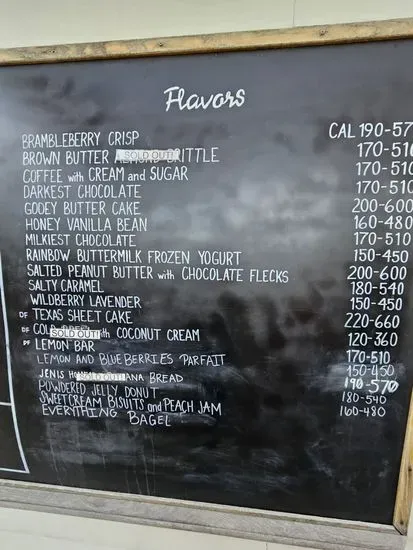 Flavors
BRAMBLEBERRY CRISP CAL 190-57
BROWN BUTTER SOLD OUT! BRITTLE 170-510
COFFEE with CREAM and SUGAR 170-510
DARKEST CHOCOLATE 170-510
GOOEY BUTTER CAKE 200-600
HONEY VANILLA BEAN 160-480
MILKIEST CHOCOLATE 170-510
RAINBOW BUTTERMILK FROZEN YOGURT 150-450
SALTED PEANUT BUTTER with CHOCOLATE FLECKS 200-600
SALTY CARAMEL 180-540
WILDBERRY LAVENDER 150-450
DF TEXAS SHEET CAKE 220-660
DF SOLD OUT! with COCONUT CREAM 120-360
DF LEMON BAR 170-510
LEMON AND BLUEBERRIES PARFAIT 150-450
JENIS SOLD OUT! BREAD 190-570
POWDERED JELLY DONUT 180-540
SWEET CREAM BISUITS and PEACH JAM 160-480
EVERYTHING BAGEL